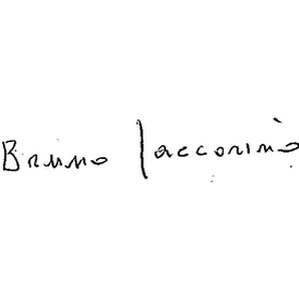 Bruno Iaccorino